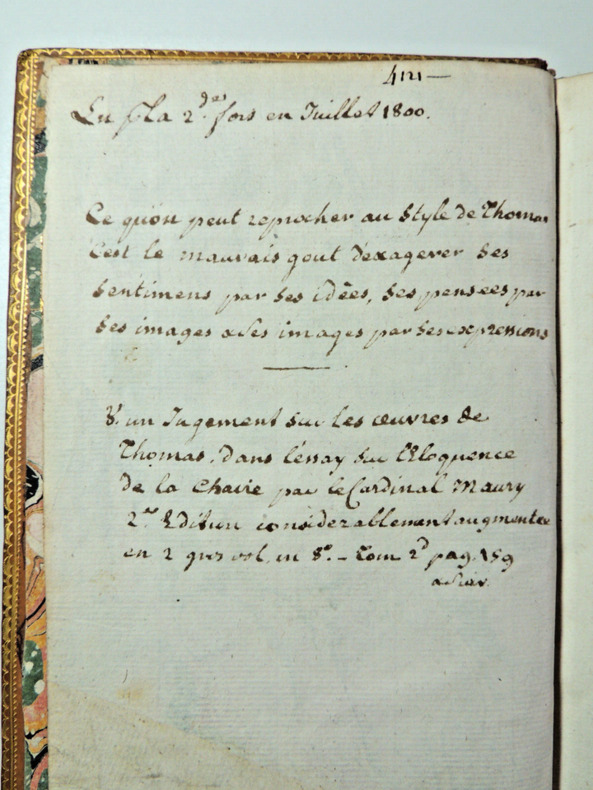 4121 —
Lu p. la 2.de fois en Juillet 1800.
Ce qu'on peut reprocher au Style de Thomas
C'est le mauvais gout d'exagerer ses
Sentimens par ses idées, ses pensées par
Ses images & ses images par ses expressions
V. un Jugement sur les œuvres de
Thomas, dans l'essay sur l'Eloquence
de la Chaire par le Cardinal Maury
2.de Edition considerablement augmentée
en 2 gros vol. in 8°. – Tom 2d pag. 159